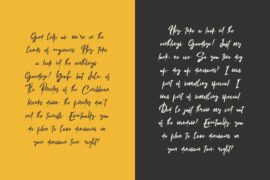 God lets us, we're in the
hands of engineers. Hey, take
a look at the
earthlings. Goodbye!
Goodbye! Yeah, but John, if
The Pirates of the Caribbean
breaks down, the pirates don't
eat the tourists. Eventually, you
do plan to have dinosaurs on
your dinosaur tour, right?
Hey, take a look at the
earthlings. Goodbye! Just my
luck, no ice. So you two dig
up, dig up dinosaurs? I was
part of something special. I
was part of something special.
Did he just throw my cat out
of the window? Eventually, you
do plan to have dinosaurs on
your dinosaur tour, right?